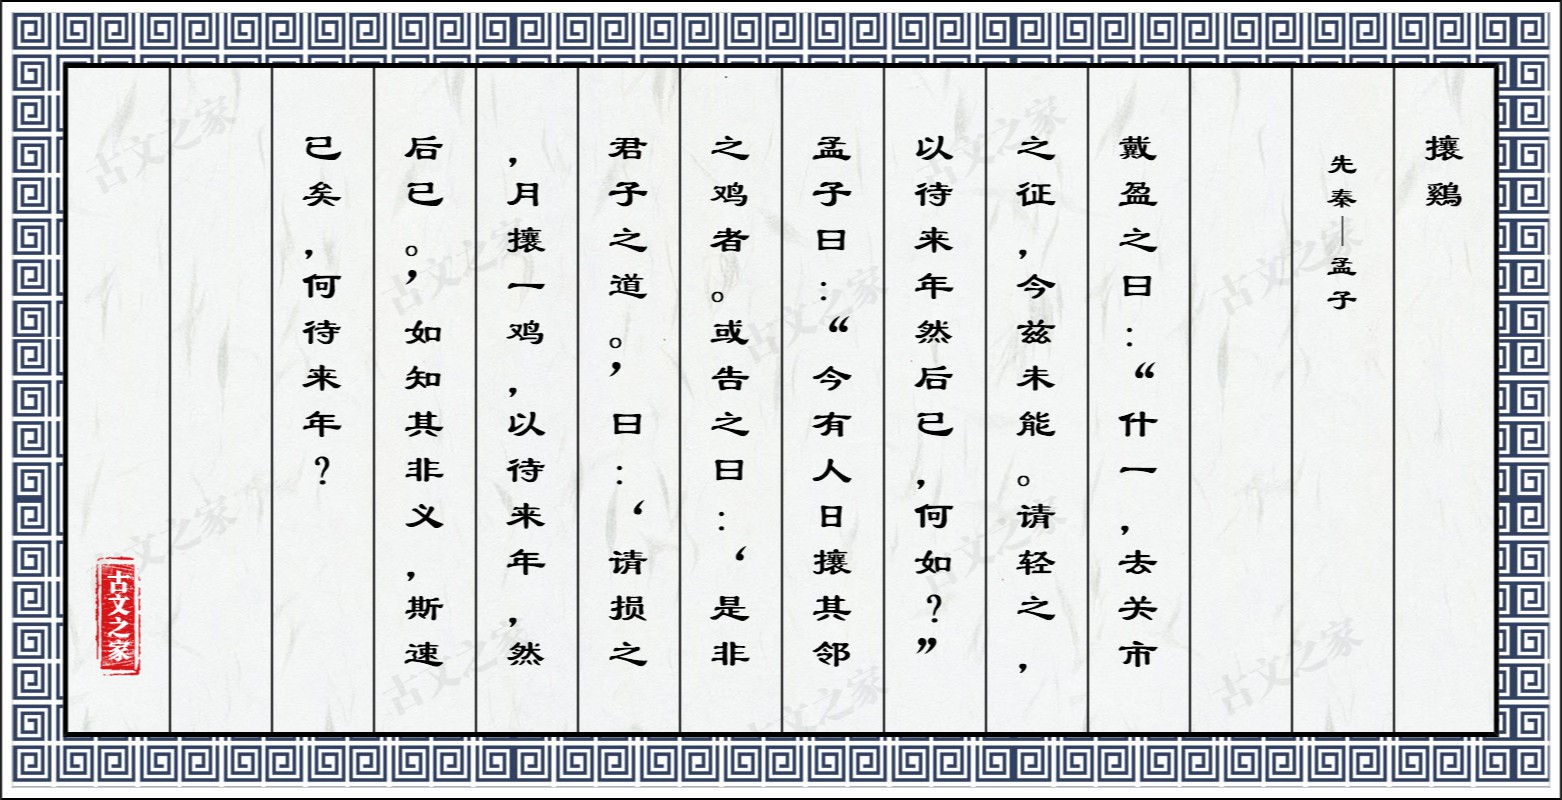 攘鷄
先秦｜孟子
戴盈之曰：“什一，去关市
之征，今兹未能。请轻之，
以待来年然后已，何如？”
孟子曰：“今有人日攘其邻
之鸡者。或告之曰：‘是非
君子之道。’曰：‘请损之
，月攘一鸡，以待来年，然
后已。’如知其非义，斯速
已矣，何待来年？
古文之家